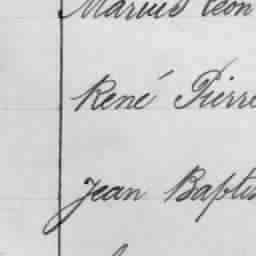 Marius Léon
René Pierre
Jean Baptis